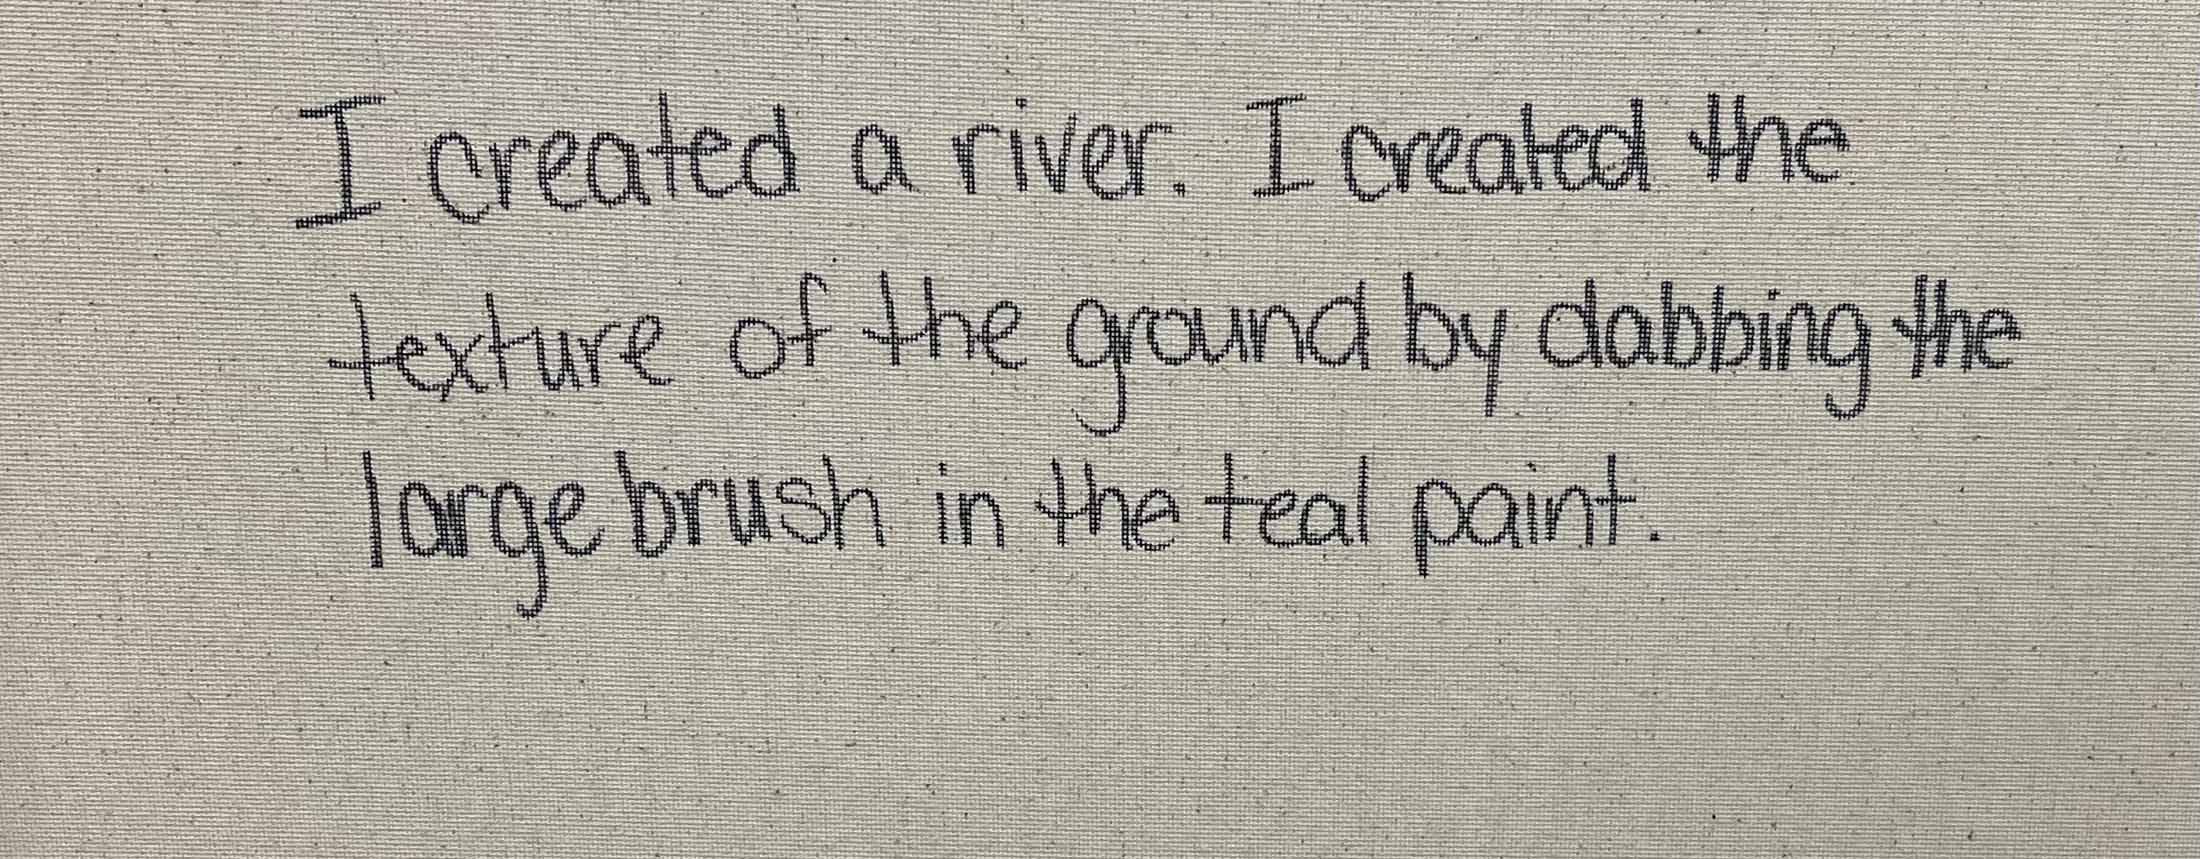 I created a river. I created the
texture of the ground by dabbing the
large brush in the teal paint.